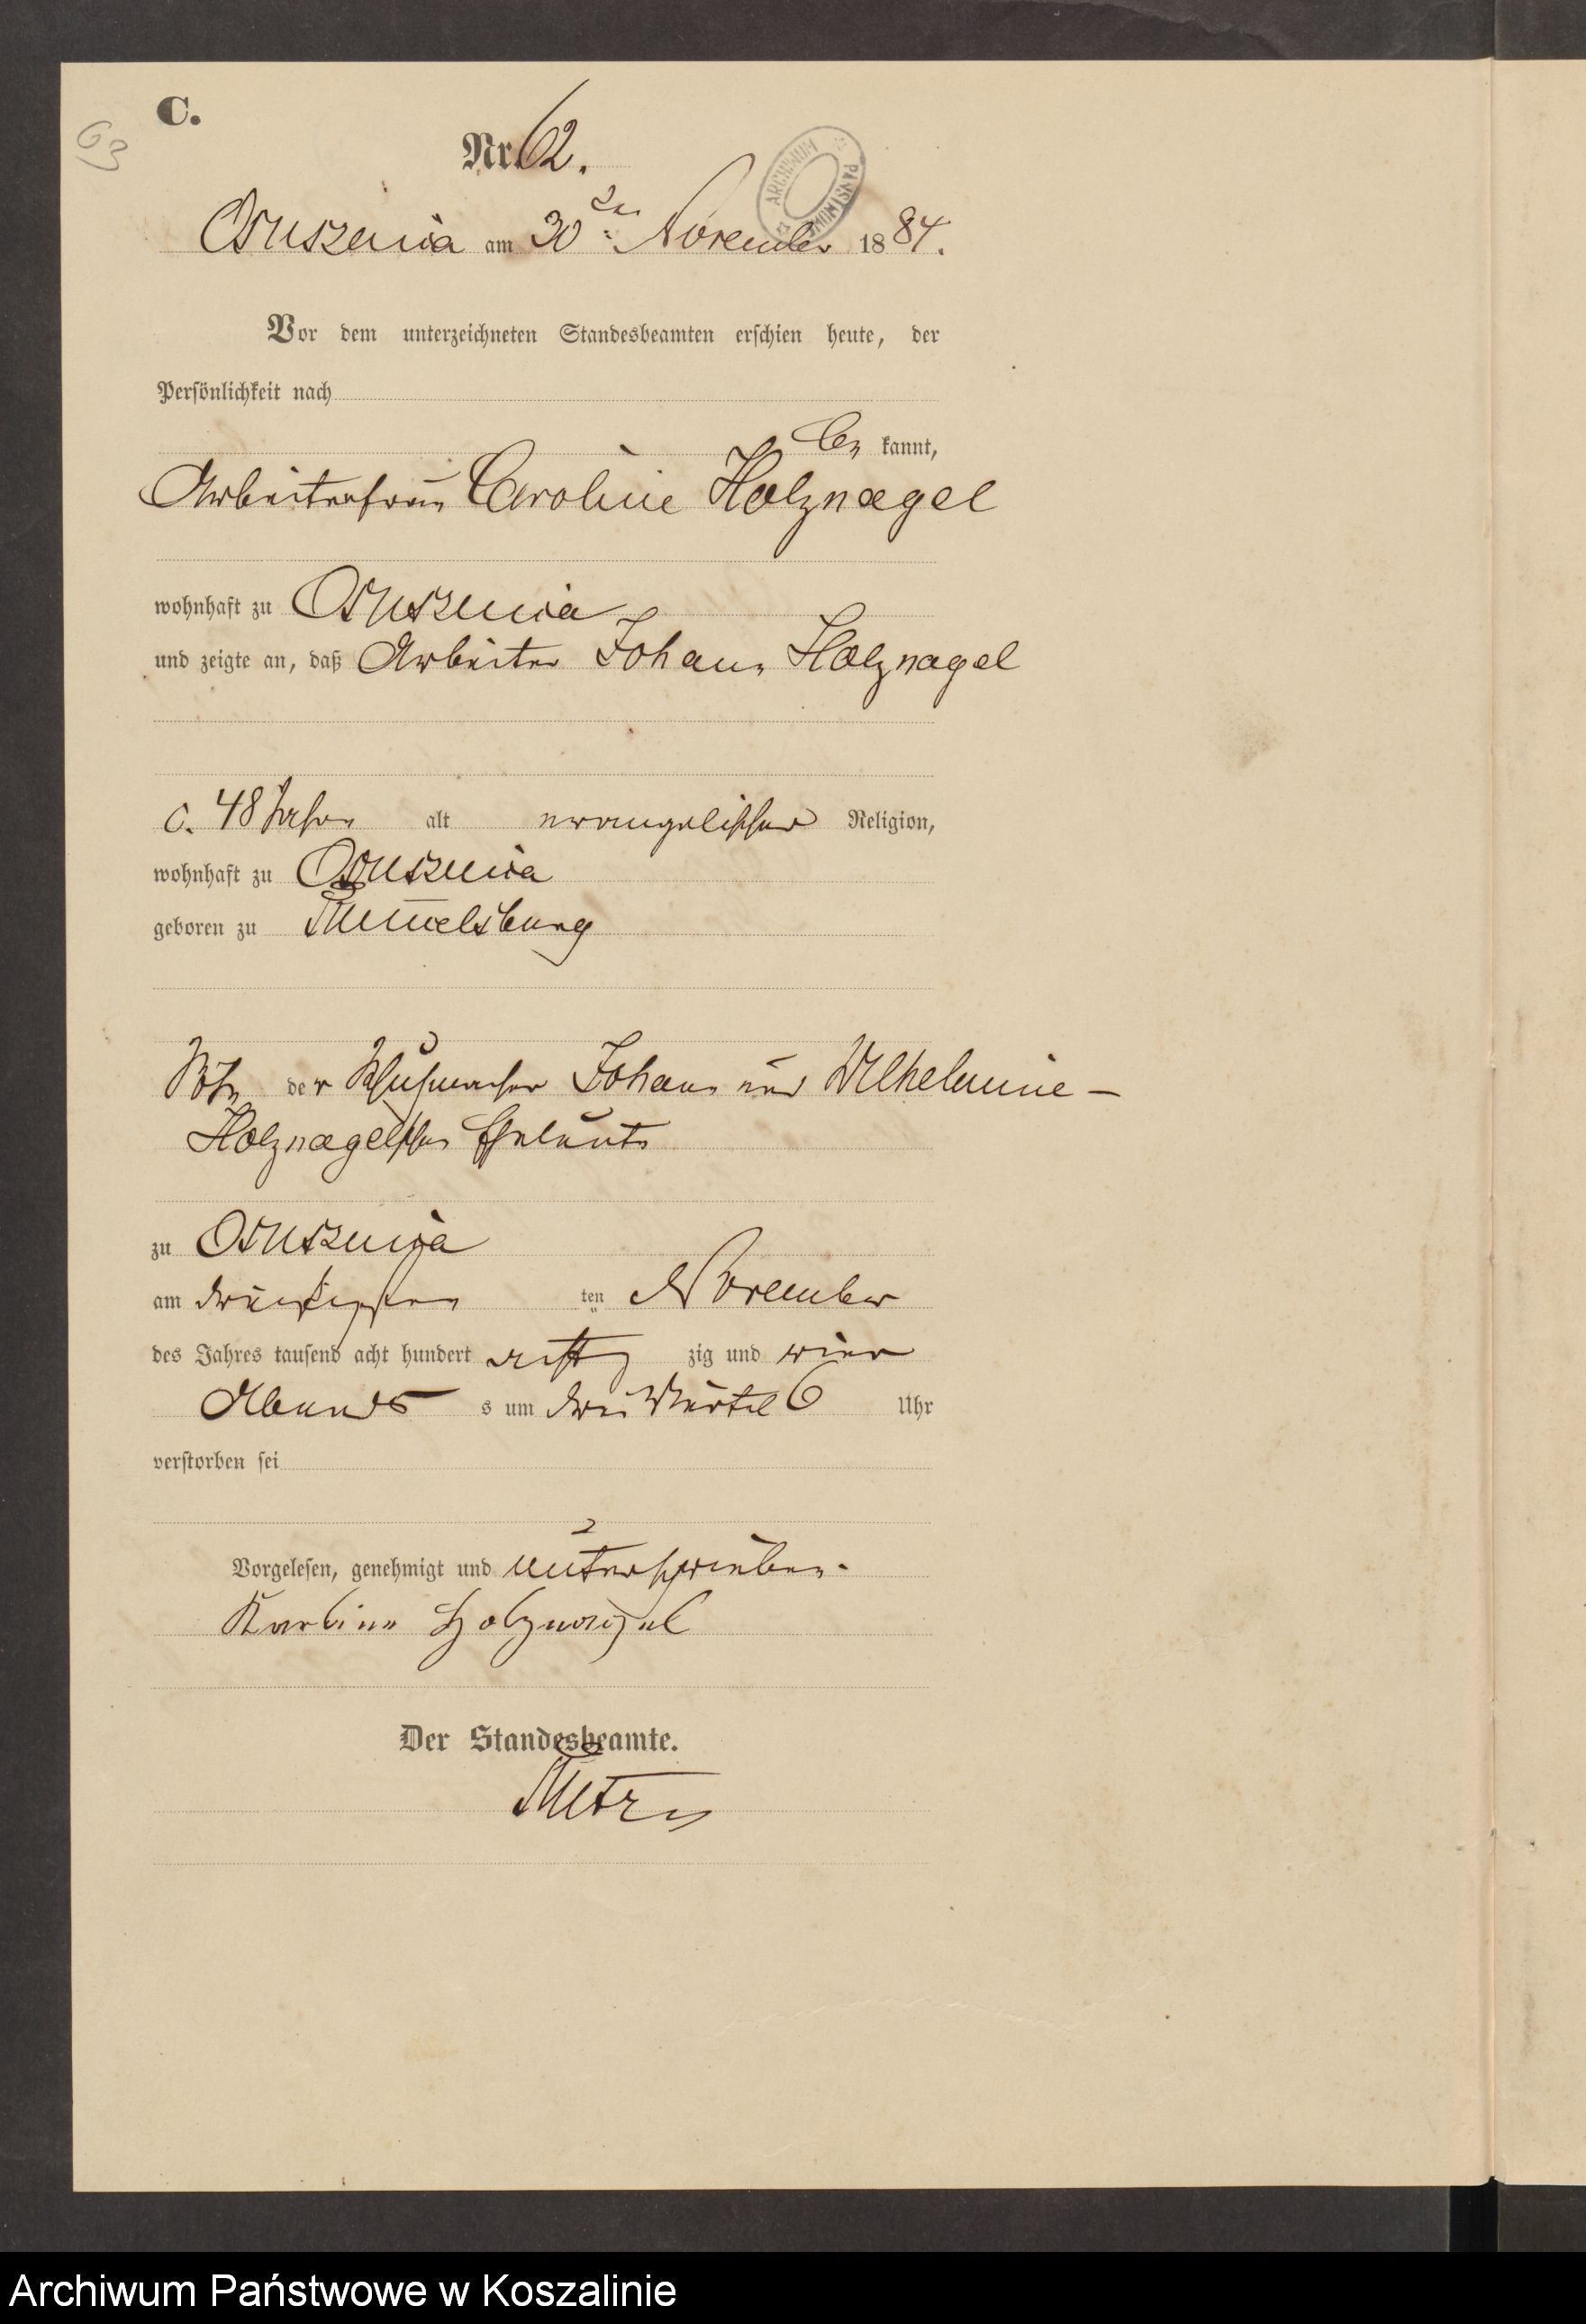 C.
63
Nr. 62.
ARCHIWUM PAŃSTWOWE
Ossuszenica am 30ten November 1884.
Vor dem unterzeichneten Standesbeamten erschien heute, der
Persönlichkeit nach
be kannt,
Arbeiterfrau Caroline Holznagel
wohnhaft zu
und zeigte an, daß Arbeiter Johann Holznagel
c. 48 Jahre alt evangelischer Religion,
wohnhaft zu
geboren zu Rummelsburg
Sohn der Schuhmacher Johann und Wilhelmine –
Holznagelschen Eheleute
zu
am dreißigsten ten November
des Jahres tausend acht hundert acht zig und vier
Abends s um drei Viertel 6 Uhr
verstorben sei
Vorgelesen, genehmigt und unterschrieben.
Karline Holznagel
Der Standesbeamte.
Archiwum Państwowe w Koszalinie